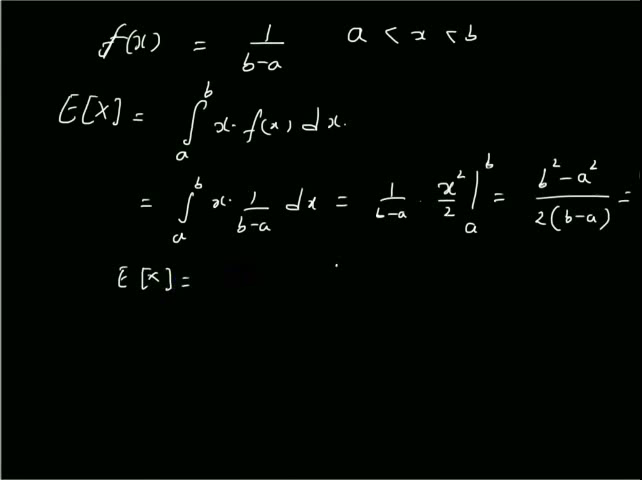 f(x) = 1/(b-a) a < x < b
E[X] = ∫_a^b x. f(x) dx.
= ∫_a^b x. 1/(b-a) dx = 1/(b-a) . x²/2 |_a^b = (b²-a²)/(2(b-a)) =
E[x] =